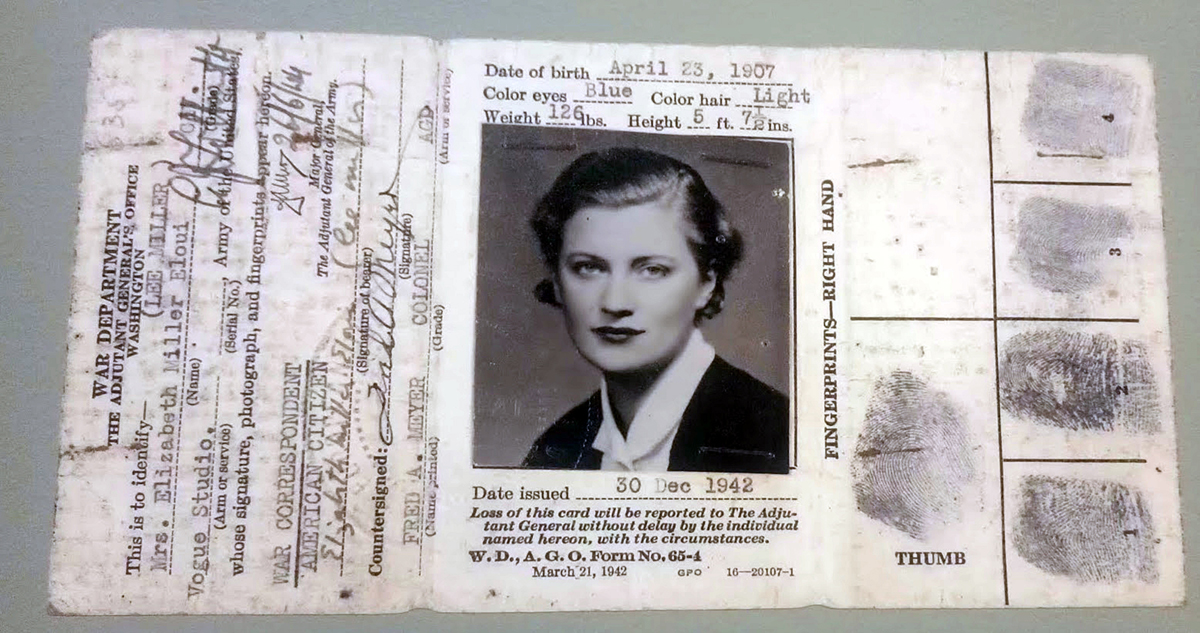 WAR DEPARTMENT
THE ADJUTANT GENERAL'S OFFICE
WASHINGTON
This is to identify—
(LEE MILLER)
Mrs. Elizabeth Miller Eloui
(Name)
Vogue Studio.
(Arm or service) (Serial No.) (Grade)
Army of the United States,
whose signature, photograph, and fingerprints appear hereon.
Major General,
The Adjutant General of the Army.
WAR CORRESPONDENT
AMERICAN CITIZEN
Elizabeth Miller Eloui (Lee Miller)
(Signature of bearer)
Countersigned:
(Signature)
FRED A. MEYER COLONEL AGD
(Name printed) (Grade) (Arm or service)
Date of birth April 23, 1907
Color eyes Blue Color hair Light
Weight 126 lbs. Height 5 ft. 7½ ins.
Date issued 30 Dec 1942
Loss of this card will be reported to The Adju-
tant General without delay by the individual
named hereon, with the circumstances.
W. D., A. G. O. Form No. 65-4
March 21, 1942 GPO 16—20107-1
FINGERPRINTS—RIGHT HAND
THUMB
4
3
2
1